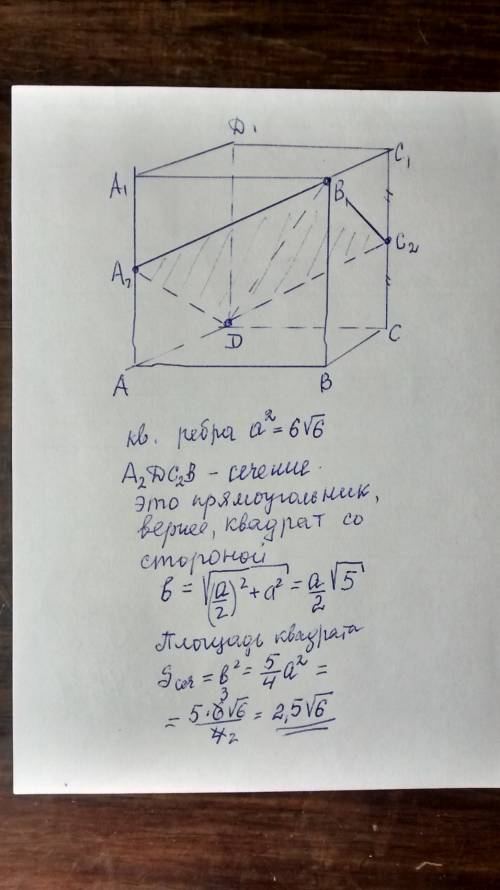 D₁
C₁
A₁
B₁
A₂
C₂
D
C
A
B
кв. ребра a² = 6√6
A₂DC₂B – сечение.
это прямоугольник,
вернее, квадрат со
стороной
b = √((a/2)² + a²) = a/2 √5
Площадь квадрата
Sсеч = b² = 5/4 a² =
= 5·6√6/4 = 2,5√6
3
2